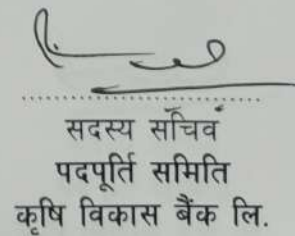 सदस्य सचिव
पदपूर्ति समिति
कृषि विकास बैंक लि.